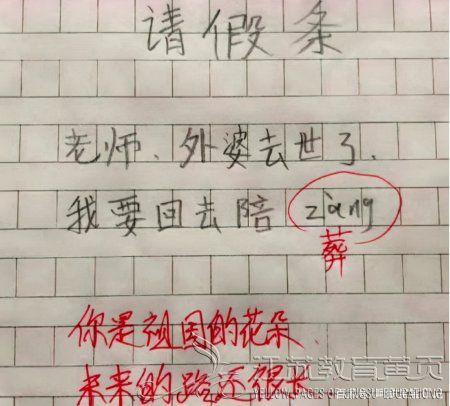 请假条
老师、外婆去世了.
我要回去陪 zàng
葬
你是祖国的花朵.
未来的路还很长
江苏教育黄页
YELLOW PAGES OF JIANGSU EDUCATION